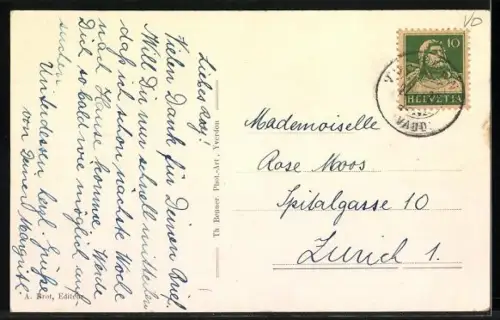 Liebes Rosy!
Vielen Dank für Deinen Brief.
Will Dir nur schnell mitteilen
daß ich schon nächste Woche
nach Hause komme. Werde
Dich so bald wie möglich auf-
suchen.
Unterdessen herzl. Grüße
von Deiner Margrit.
Th. Beuner Phot.-Art., Yverdon
A. Brot, Editeur
10
HELVETIA
VAUD
Mademoiselle
Rose Moos
Spitalgasse 10
Zürich 1.
VD